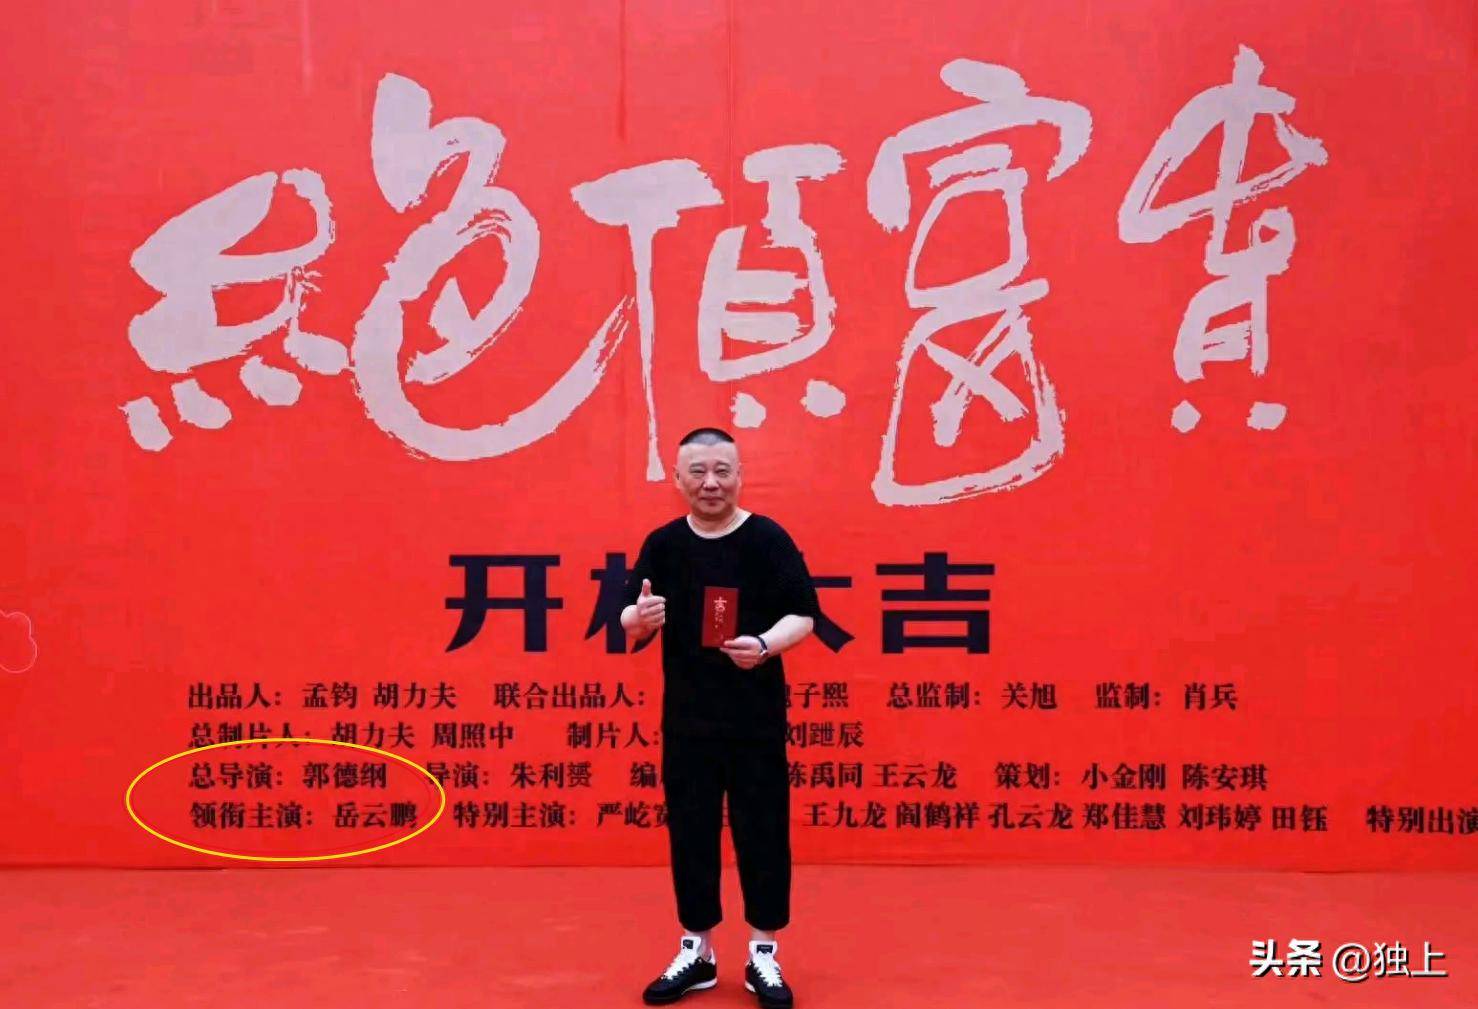 絕頂富貴
开机大吉
出品人：孟钧 胡力夫 联合出品人： 子熙 总监制：关旭 监制：肖兵
总制片人：胡力夫 周照中 制片人： 刘跇辰
总导演：郭德纲 导演：朱利赟 编 陈禹同 王云龙 策划：小金刚 陈安琪
领衔主演：岳云鹏 特别主演：严屹宽 王九龙 阎鹤祥 孔云龙 郑佳慧 刘玮婷 田钰 特别出演
头条 @独上